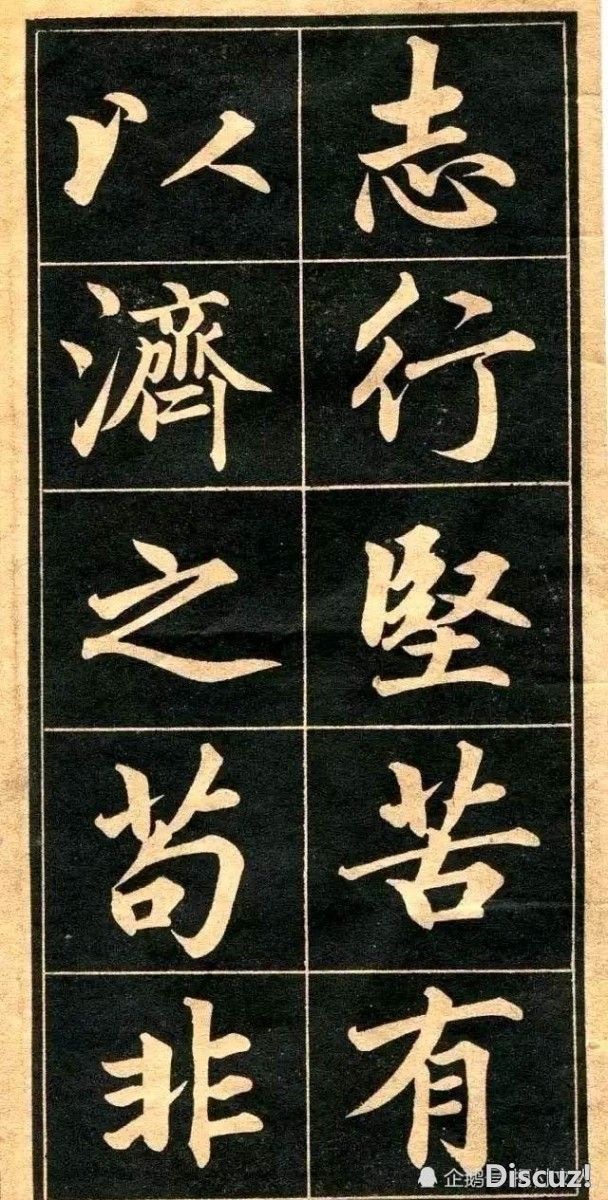 志行堅苦有
以濟之苟非
Discuz!